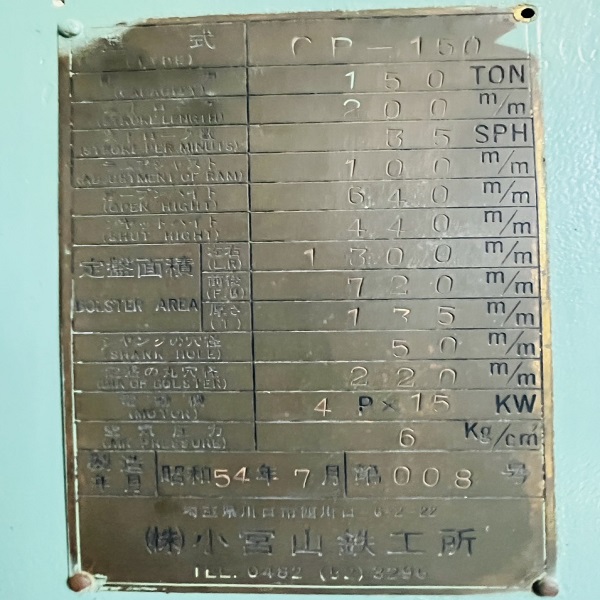 型 式 (TYPE) OP-150
能 力 (CAPACITY) 150 TON
ストローク (STROKE LENGTH) 200 m/m
ストローク数 (STROKE PER MINUTS) 35 SPH
ラムアジャスト (ADJUSTMENT OF RAM) 100 m/m
オープンハイト (OPEN HIGHT) 640 m/m
シャットハイト (SHUT HIGHT) 440 m/m
定盤面積 BOLSTER AREA 左右 (L.R) 1300 m/m
前後 (F.B) 720 m/m
厚さ (T) 135 m/m
シャンクの穴径 (SHANK HOLE) 50 m/m
(DIA OF BOLSTER) 220 m/m
電動機 (MOTOR) 4P×15 KW
空気圧力 (AIR PRESSURE) 6 Kg/cm²
製造年月 昭和54年7月 第008号
埼玉県川口市
(株)小宮山鉄工所
TEL. 0482 (52) 3296